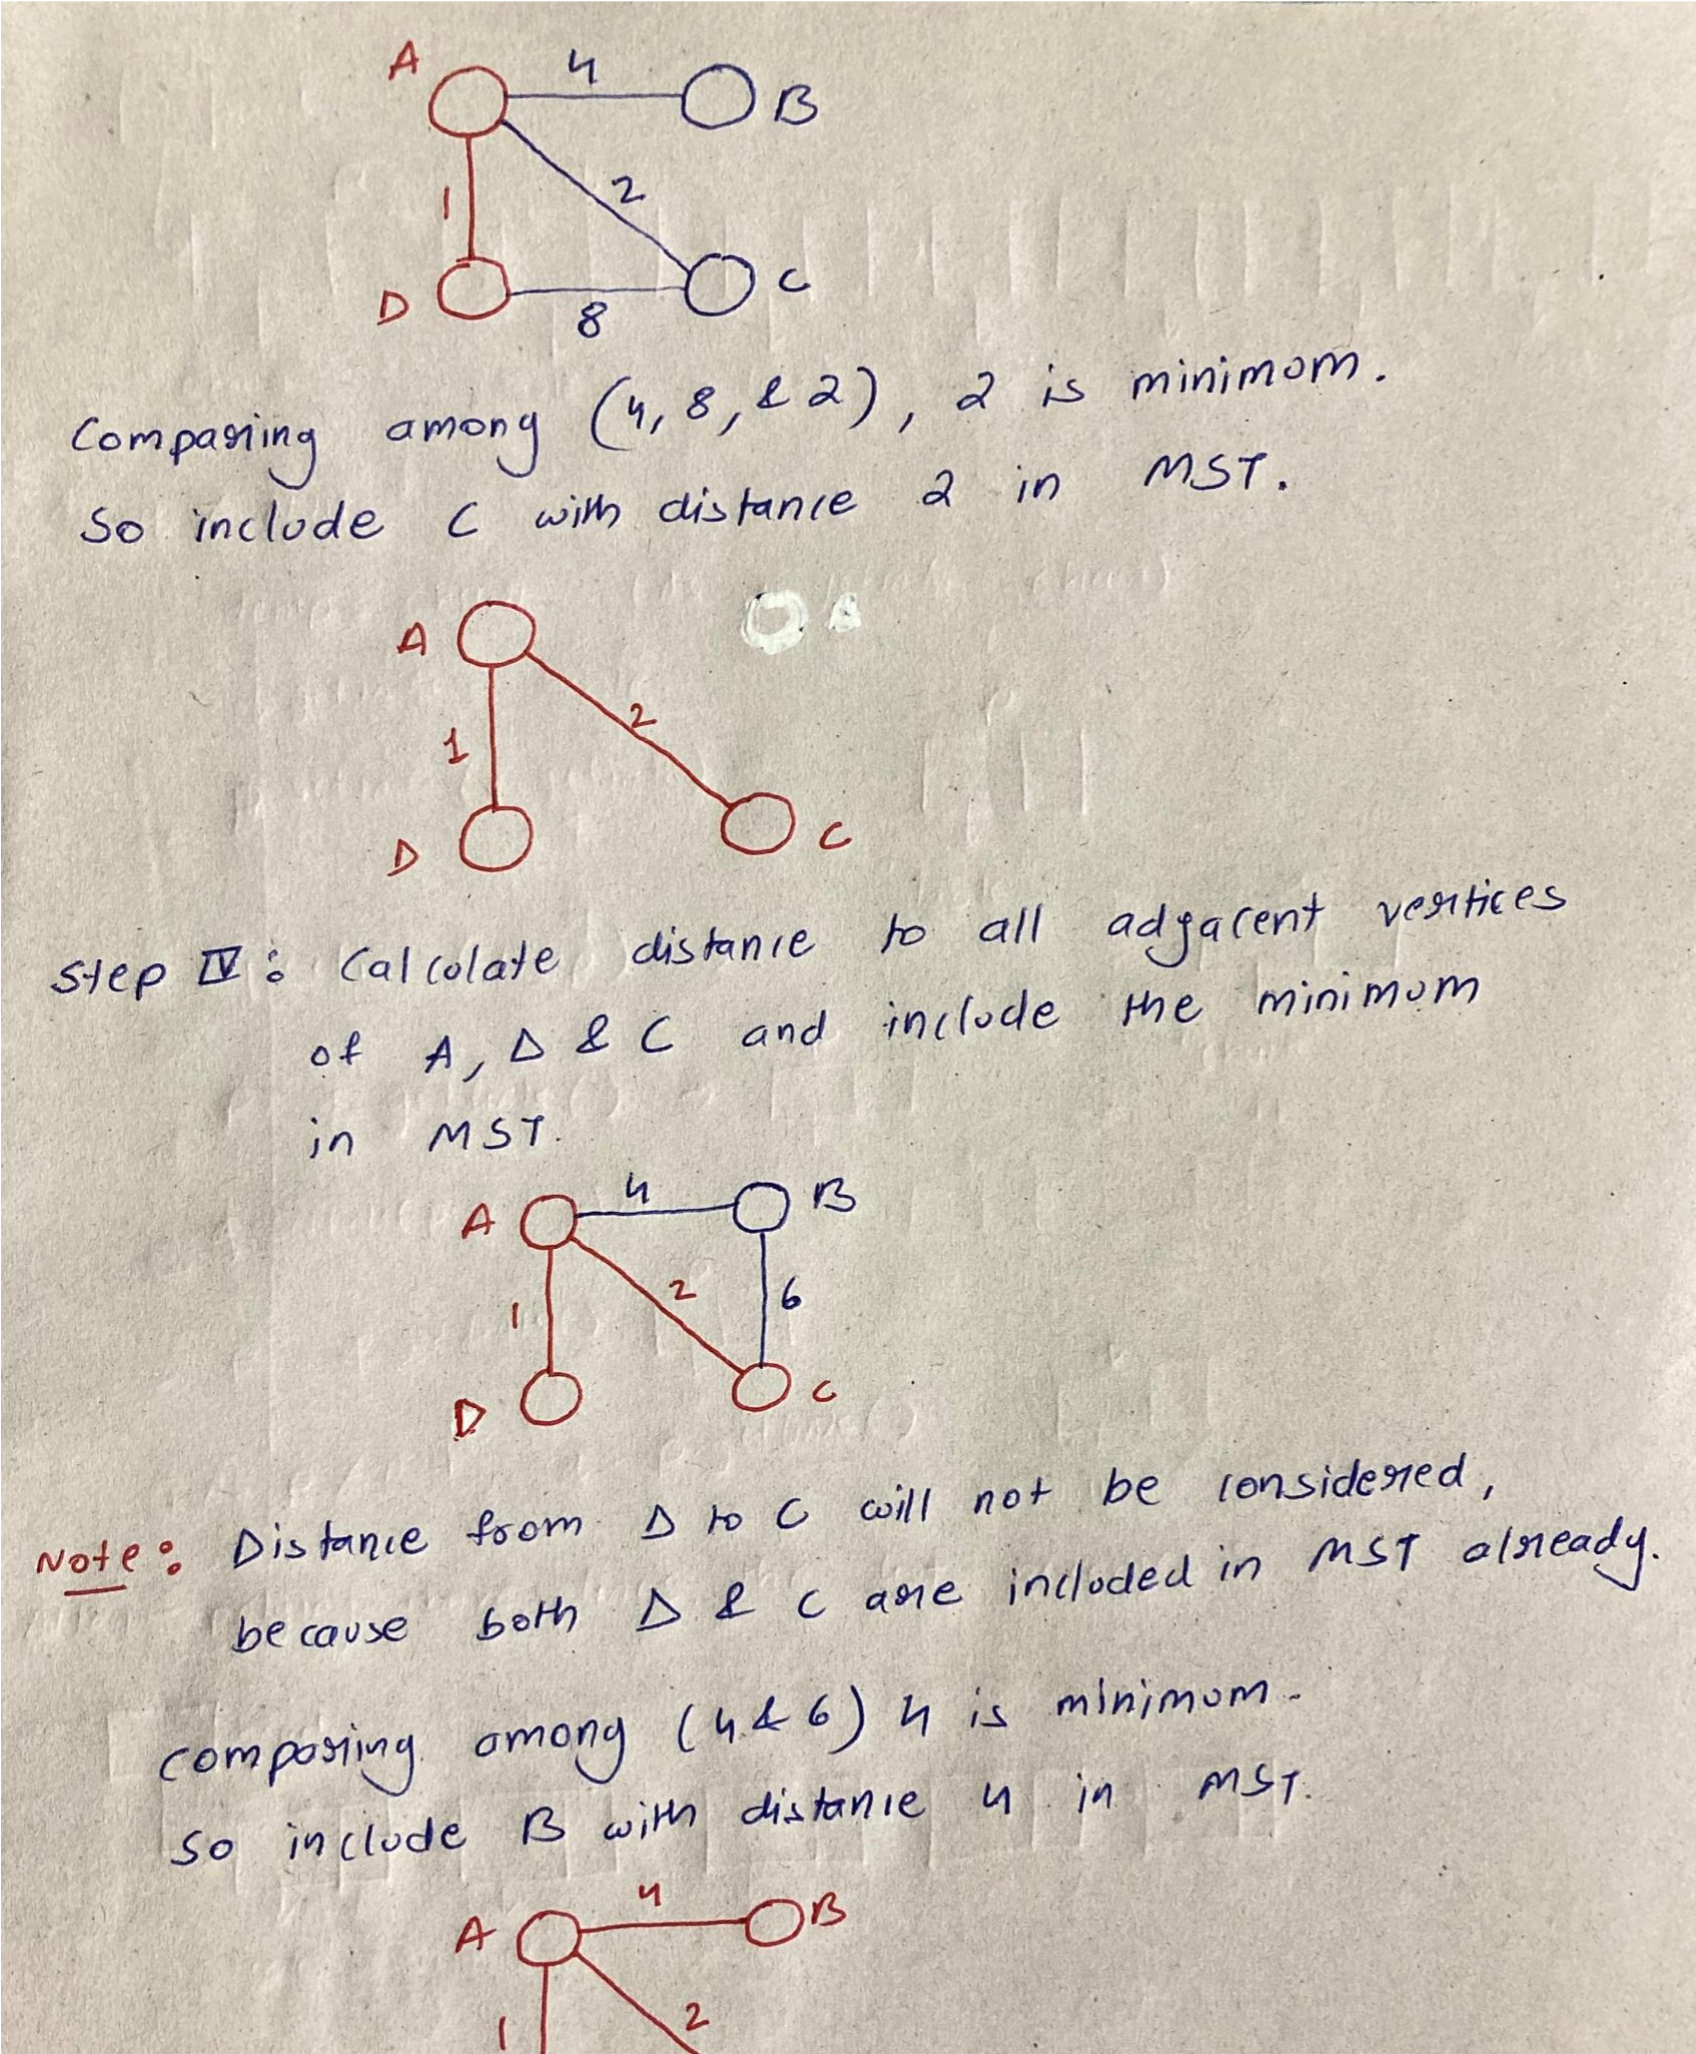 A 4 B
1 2
D 8 C
Comparing among (4, 8, & 2), 2 is minimum.
So include C with distance 2 in MST.
A
1 2
D C
Step IV: Calculate distance to all adjacent vertices
of A, D & C and include the minimum
in MST.
A 4 B
1 2 6
D C
Note: Distance from D to C will not be considered,
because both D & C are included in MST already.
Comparing among (4 & 6) 4 is minimum.
So include B with distance 4 in MST.
A 4 B
1 2